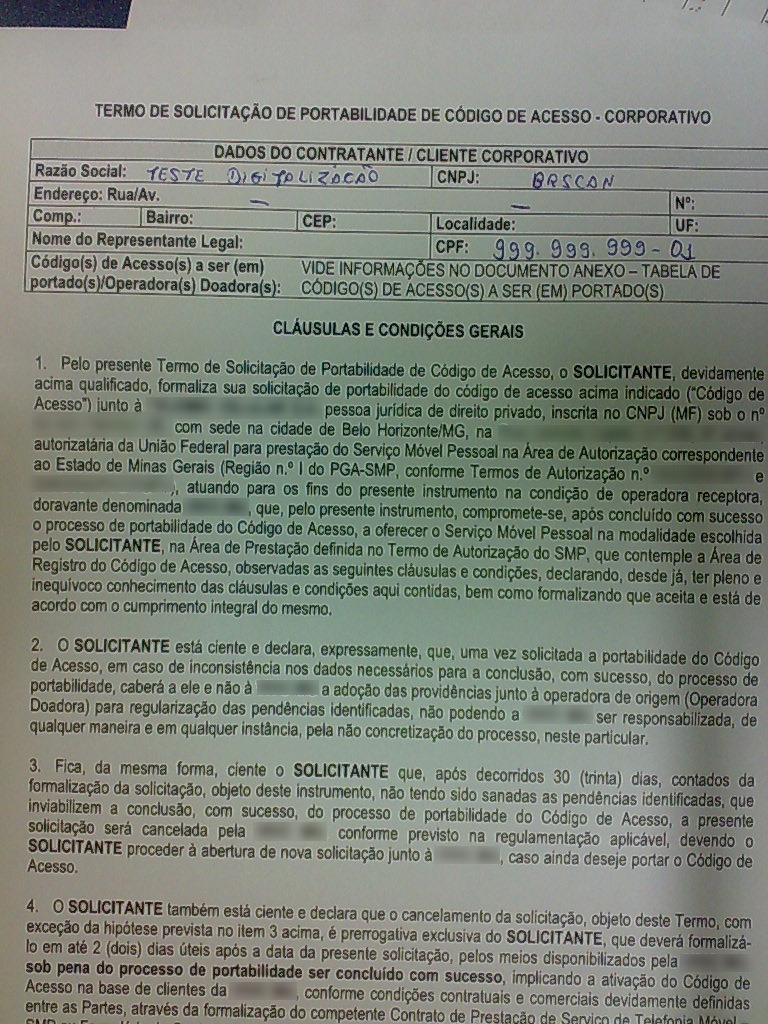 TERMO DE SOLICITAÇÃO DE PORTABILIDADE DE CÓDIGO DE ACESSO - CORPORATIVO
DADOS DO CONTRATANTE / CLIENTE CORPORATIVO
Razão Social: TESTE DIGITALIZAÇÃO CNPJ: BRSCAN
Endereço: Rua/Av. — — Nº:
Comp.: Bairro: CEP: Localidade: UF:
Nome do Representante Legal: CPF: 999.999.999-01
Código(s) de Acesso(s) a ser (em) VIDE INFORMAÇÕES NO DOCUMENTO ANEXO – TABELA DE
portado(s)/Operadora(s) Doadora(s): CÓDIGO(S) DE ACESSO(S) A SER (EM) PORTADO(S)
CLÁUSULAS E CONDIÇÕES GERAIS
1. Pelo presente Termo de Solicitação de Portabilidade de Código de Acesso, o SOLICITANTE, devidamente
acima qualificado, formaliza sua solicitação de portabilidade do código de acesso acima indicado (“Código de
Acesso”) junto à pessoa jurídica de direito privado, inscrita no CNPJ (MF) sob o nº
com sede na cidade de Belo Horizonte/MG, na
autorizatária da União Federal para prestação do Serviço Móvel Pessoal na Área de Autorização correspondente
ao Estado de Minas Gerais (Região n.º I do PGA-SMP, conforme Termos de Autorização n.º e
), atuando para os fins do presente instrumento na condição de operadora receptora,
doravante denominada , que, pelo presente instrumento, compromete-se, após concluído com sucesso
o processo de portabilidade do Código de Acesso, a oferecer o Serviço Móvel Pessoal na modalidade escolhida
pelo SOLICITANTE, na Área de Prestação definida no Termo de Autorização do SMP, que contemple a Área de
Registro do Código de Acesso, observadas as seguintes cláusulas e condições, declarando, desde já, ter pleno e
inequívoco conhecimento das cláusulas e condições aqui contidas, bem como formalizando que aceita e está de
acordo com o cumprimento integral do mesmo.
2. O SOLICITANTE está ciente e declara, expressamente, que, uma vez solicitada a portabilidade do Código
de Acesso, em caso de inconsistência nos dados necessários para a conclusão, com sucesso, do processo de
portabilidade, caberá a ele e não à a adoção das providências junto à operadora de origem (Operadora
Doadora) para regularização das pendências identificadas, não podendo a ser responsabilizada, de
qualquer maneira e em qualquer instância, pela não concretização do processo, neste particular.
3. Fica, da mesma forma, ciente o SOLICITANTE que, após decorridos 30 (trinta) dias, contados da
formalização da solicitação, objeto deste instrumento, não tendo sido sanadas as pendências identificadas, que
inviabilizem a conclusão, com sucesso, do processo de portabilidade do Código de Acesso, a presente
solicitação será cancelada pela conforme previsto na regulamentação aplicável, devendo o
SOLICITANTE proceder à abertura de nova solicitação junto à , caso ainda deseje portar o Código de
Acesso.
4. O SOLICITANTE também está ciente e declara que o cancelamento da solicitação, objeto deste Termo, com
exceção da hipótese prevista no item 3 acima, é prerrogativa exclusiva do SOLICITANTE, que deverá formalizá-
lo em até 2 (dois) dias úteis após a data da presente solicitação, pelos meios disponibilizados pela
sob pena do processo de portabilidade ser concluído com sucesso, implicando a ativação do Código de
Acesso na base de clientes da , conforme condições contratuais e comerciais devidamente definidas
entre as Partes, através da formalização do competente Contrato de Prestação de Serviço de Telefonia Móvel –